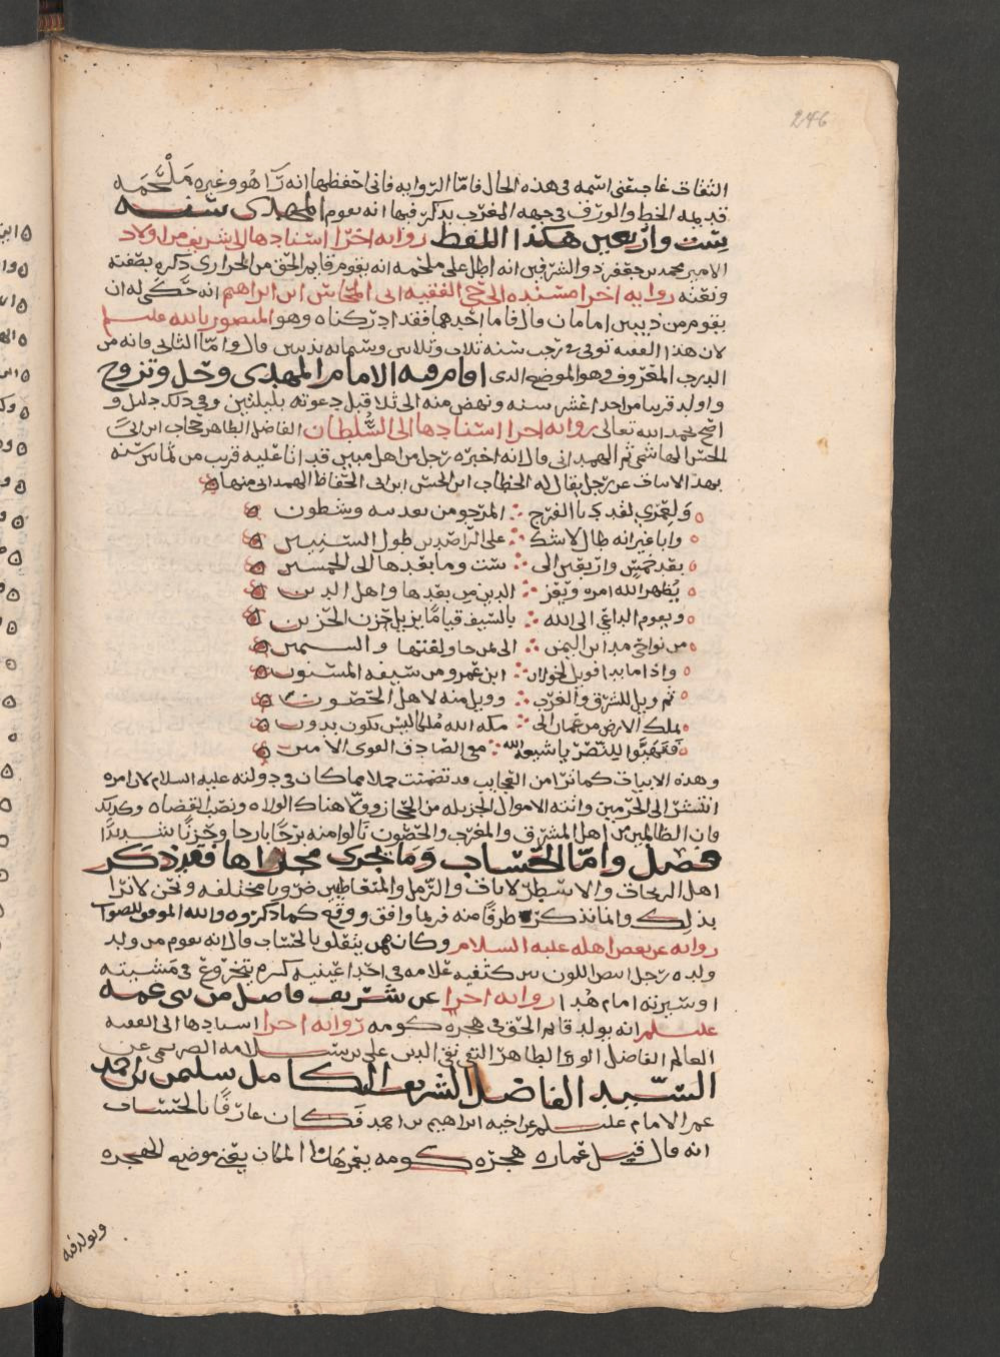 246
الثقات غاب عني اسمه في هذه الحال فاما الروايه فاني احفظها انه رآ هو وغيره ملحمه
قديمه الخط والورق في جهه المغرب يذكر فيها انه يقوم المهدي سنه
ست واربعين هكذا اللفظ روايه اخرا اسنادها الى شريف من اولاد
الامير محمد بن جعفر ذو الشرفين انه اطلع على ملحمه انه يقوم قايم الحق من الحرازي ذكره بصفته
ونعته روايه اخرا مسنده الى الفقيه ابي ابراهيم انه حكى له ان
يقوم من ذيبين امامان قال فاما احدهما فقد ادركناه وهو المنصور بالله عليلم
لان هذا الفقيه توفي في رجب سنه ثلاث وثلاثين وستمايه بذيبين قال واما الثاني فانه من
الدرب المعروف وهو الموضع الذي اقام فيه الامام المهدي وحل وتزوج
واولد قريبا من احد اعشر سنه ونهض منه الى ثلا قبل دعوته بليلتين وفي ذلك دليل و
اضح بحمد الله تعالى روايه اخرا اسنادها الى السلطان الفاضل الطاهر بن ابي
الحسن الهاشمي ثم الهمداني قال انه اخبره رجل من اهل مبين قد اتا عليه قريب من ثمانين سنه
بهذه الابيات عن رجل يقال له الخطاب ابن الحسن ابن ابي الحفاظ الهمداني منها
ولعمري لقد بنا الفرج ∴ المرجو من بعد وشطون
وابا غير انه طال لا شك ∴ على الراصدين طول السنين
بعد خمس واربعين الى ∴ ست وما بعدها الى الخمسين
يظهر الله امره ويعز ∴ الدين من بعدها واهل الدين
ويقوم الداعي الى الله ∴ بالسيف قياما يزيل حزن الحزين
من نواحي
واذا ما بدا فويل لخولان ∴ ابن عمرو من سيفه المسنون
ثم ويل للشرق والغرب ∴ وويل منه لاهل الحصون
يملك الارض من عمان الى ∴ مكه الله ملكا ليس يكون بدون
فتهيوا للنصر يا شيعه الله ∴ مع الصادق القوي الامين
وهذه الابيات كما ترا من العجايب قد تضمنت جملا مما كان في دولته عليه السلام لان امره
انتشر الى الحرمين واتته الاموال الجزيله من الحجاز وولا هناك الولاه ونصب القضاه وكذلك
فان الظالمين من اهل المشرق والمغرب والحصون نالوا منه برحا بارحا وحزنا شديدا
فصل واما الحساب وما يجري مجراها فقد ذكر
اهل الزيجات والاسطرلابات والرمل والمتعاطيين ضروبا مختلفه ونحن لا نرا
بذلك وانما نذكر طرفا منه فربما وافق ووقع كما ذكروه والله الموفق للصواب
روايه عن بعض اهله عليه السلام وكان ممن يتعلق بالحساب قال انه يقوم من ولد
ولده رجل ابيض اللون بين كتفيه علامه في احد اعينيه كسره يتخزوع في مشيته
او سيرته امام هدا روايه اخرا عن شريف فاضل من بني عمه
عليلم انه يولد قايم الحق في هجره كومه روايه اخرا اسنادها الى الفقيه
العالم الفاضل الورع الطاهر التقي نقي الدين علي بن سلامه الصريمي عن
السيد الفاضل الشريف الكامل سليمن بن احمد
عم الامام عليلم عن اخيه ابراهيم بن احمد فكان عارفا بالحساب
انه قال قبل عماره هجره كومه يعمر هذا المكان يعني موضع الهجره
ويولد فيه